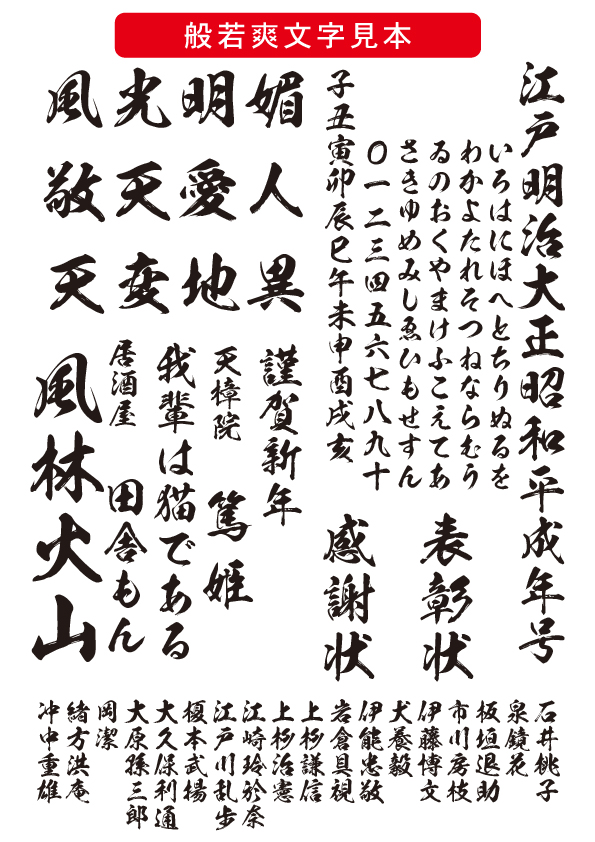 般若爽文字見本
江戸明治大正昭和平成年号
いろはにほへとちりぬるを
わかよたれそつねならむう
ゐのおくやまけふこえてあ
さきゆめみしゑひもせすん
〇一二三四五六七八九十
子丑寅卯辰巳午未申酉戌亥
表彰状
感謝状
媚人異
明愛地
光天変
風敬天
謹賀新年
天樟院
篤姫
我輩は猫である
居酒屋
田舎もん
風林火山
石井桃子
泉鏡花
板垣退助
市川房枝
伊藤博文
犬養毅
伊能忠敬
岩倉具視
上杉謙信
上杉治憲
江崎玲於奈
江戸川乱歩
榎本武揚
大久保利通
大原孫三郎
岡潔
緒方洪庵
沖中重雄